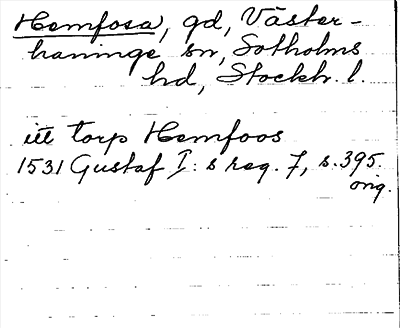 Hemfosa, gd, Väster-
haninge sn, Sotholms
hd, Stockh. l.
itt torp Hemfoos
1531 Gustaf I: s reg. 7, s. 395.
orig.